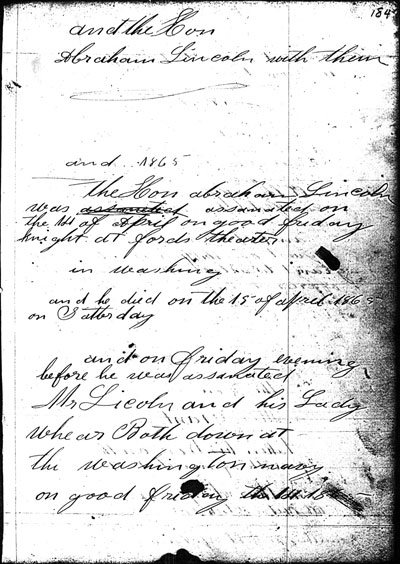 184
and the Hon
Abraham Lincoln with them
and 1865
the Hon abraham Lincoln
was assanated assanated on
the 14 of April on good friday
knight at fords theater
in washing
and he died on the 15 of april 1865
on Satterday
and on friday evening
before he was assanated
Mr Licoln and his Lady
whear Both down at
the washington navy
on good friday the 14